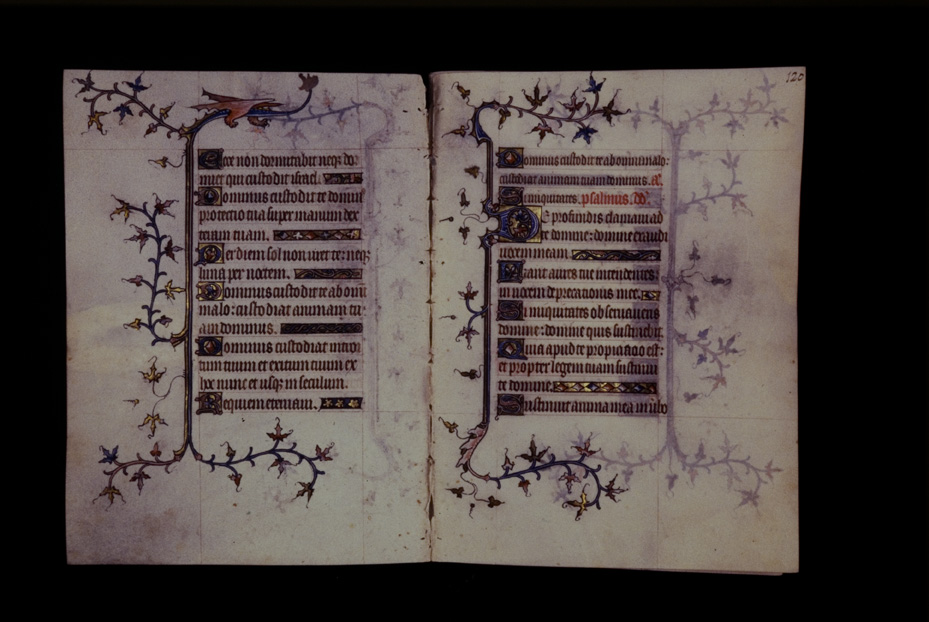 Ecce non dormitabit neq; dor
miet qui custodit israel.
Dominus custodit te domin
protectio tua super manum dex
teram tuam.
Per diem sol non uret te: neq;
luna per noctem.
Dominus custodit te ab omni
malo: custodiat animam tu
am dominus.
Dominus custodiat introi
tum tuum et exitum tuum ex
hoc nunc et usq; in seculum.
Requiem eternam.
120
Dominus custodit te ab omni malo:
custodiat animam tuam dominus.
Si iniquitates. psalmus. dd.
De profundis clamaui ad
te domine: domine exaudi
uocem meam.
Fiant aures tue intendentes:
in uocem deprecationis mee.
Si iniquitates obseruaueris
domine: domine quis sustinebit.
Quia apud te propiciatio est:
et propter legem tuam sustinui
te domine.
Sustinuit anima mea in ubo